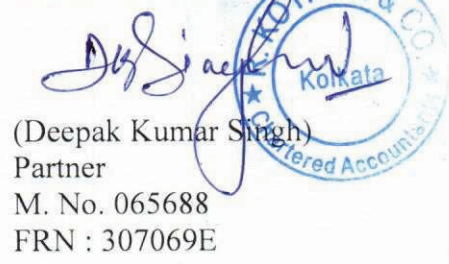 & CO.
Kolkata
Chartered Accountants
(Deepak Kumar Singh)
Partner
M. No. 065688
FRN : 307069E